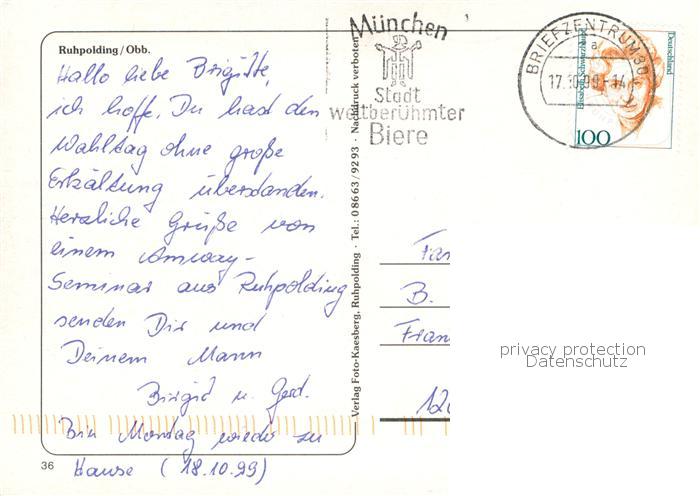 Ruhpolding/Obb.
Hallo liebe Brigitte,
ich hoffe, Du hast den
Wahltag ohne große
Erkältung überstanden.
Herzliche Grüße von
einem Amway-
Seminar aus Ruhpolding
senden Dir und
Deinem Mann
Birgid u. Gerd.
Bin Montag wieder zu
Hause (18.10.99)
36
Verlag Foto-Kaesberg, Ruhpolding · Tel.: 08663/9293 · Nachdruck verboten
München
Stadt
weltberühmter
Biere
BRIEFZENTRUM 80
a
17.10.99-14
Elisabeth Schwarzhaupt
Deutschland
100
Fam
B.
Fran
12
privacy protection
Datenschutz